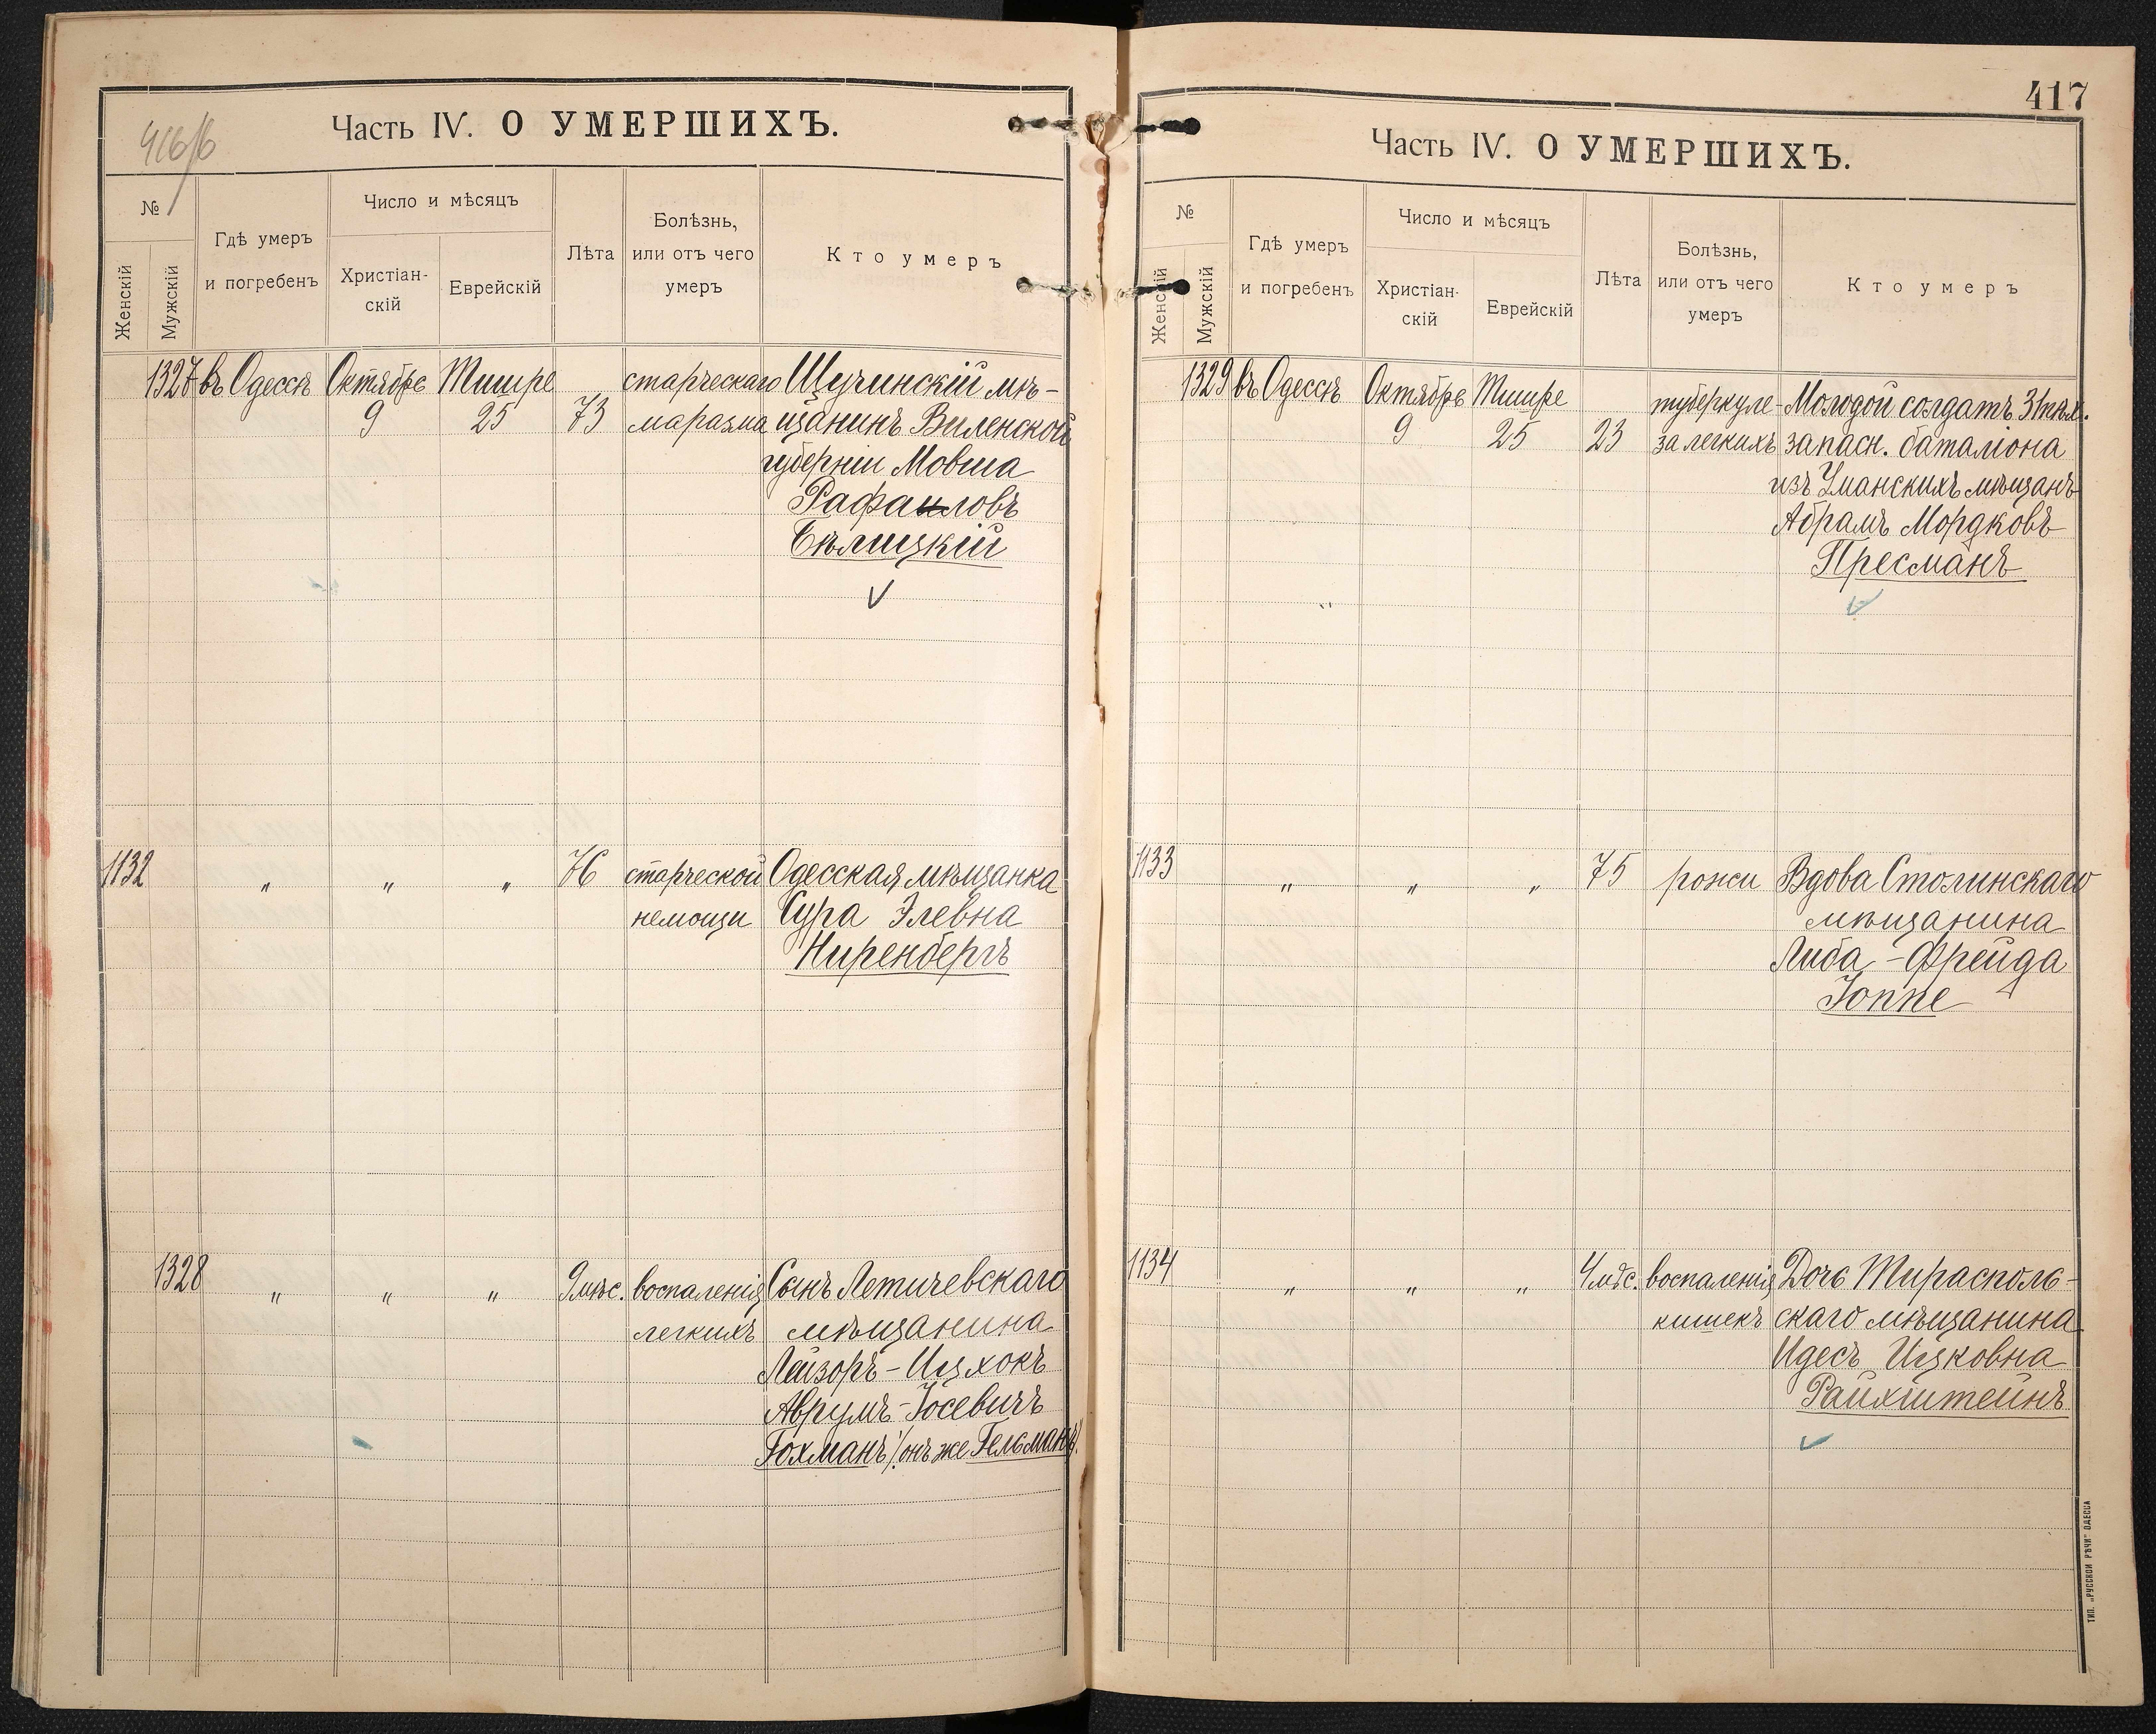 416/б
Часть IV. О УМЕРШИХЪ.
№
Женскій
Мужскій
Гдѣ умеръ
и погребенъ
Число и мѣсяцъ
Христіан-
скій
Еврейскій
Лѣта
Болѣзнь,
или отъ чего
умеръ
Кто умеръ
1327 въ Одессѣ Октябрь Тишре старческаго Щучинскій мѣ-
9 25 73 маразма щанинъ Виленской
губерніи Мовша
Рафаиловъ
Бѣлицкій
1132 " " " 76 старческой Одесская мѣщанка
немощи Сура Элевна
Ниренбергъ
1328 " " " 9 мѣс. воспаленія Сынъ Летичевскаго
легкихъ мѣщанина
Лейзоръ-Ицхокъ
Аврумъ-Іосевичъ
Гохманъ (онъ же Гельманъ)
417
Часть IV. О УМЕРШИХЪ.
№
Женскій
Мужскій
Гдѣ умеръ
и погребенъ
Число и мѣсяцъ
Христіан-
скій
Еврейскій
Лѣта
Болѣзнь,
или отъ чего
умеръ
Кто умеръ
1329 въ Одессѣ Октябрь Тишре туберкуле- Молодой солдатъ 31 пѣх.
9 25 23 за легкихъ запасн. баталіона
изъ Уманскихъ мѣщанъ
Абрамъ Мордковъ
Пресманъ
1133 " " " 75 рожи Вдова Столинскаго
мѣщанина
Либа-Фрейда
Іоппе
1134 " " " 4 мѣс. воспаленія Дочь Тирасполь-
кишекъ скаго мѣщанина
Идесъ Ицковна
Райхштейнъ
ТИП. „РУССКОЙ РѢЧИ" ОДЕССА